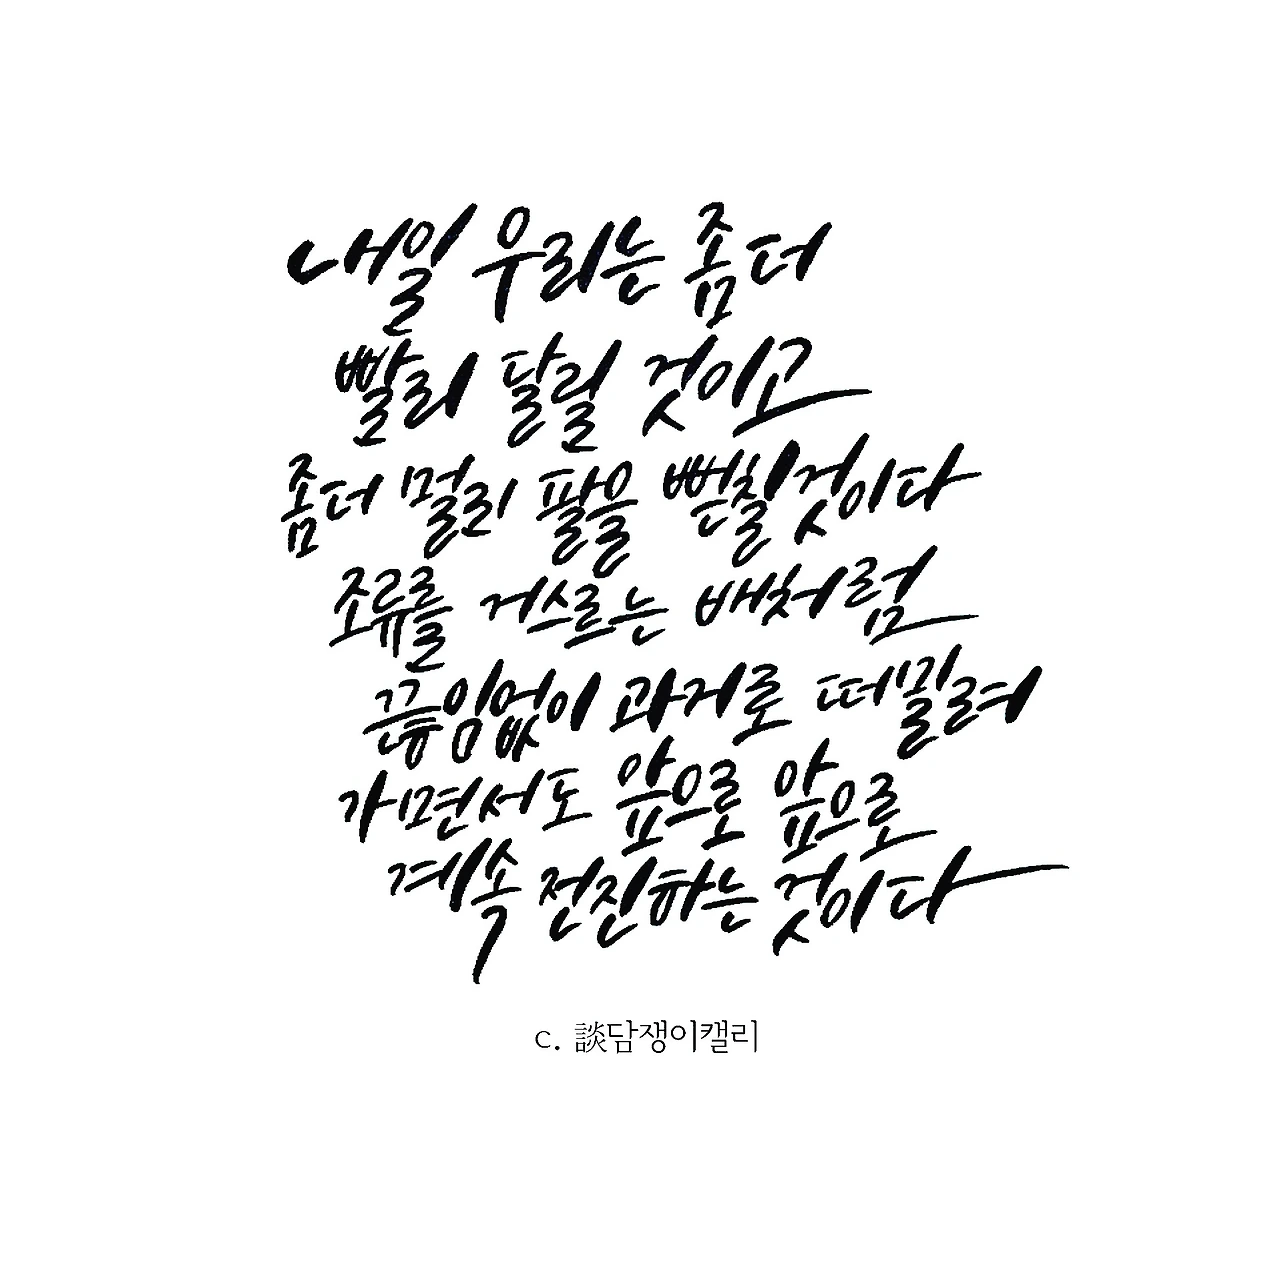 내일 우리는 좀 더
빨리 달릴 것이고
좀 더 멀리 팔을 뻗칠 것이다
조류를 거스르는 배처럼
끊임없이 과거로 떠밀려
가면서도 앞으로 앞으로
계속 전진하는 것이다
c. 談담쟁이캘리